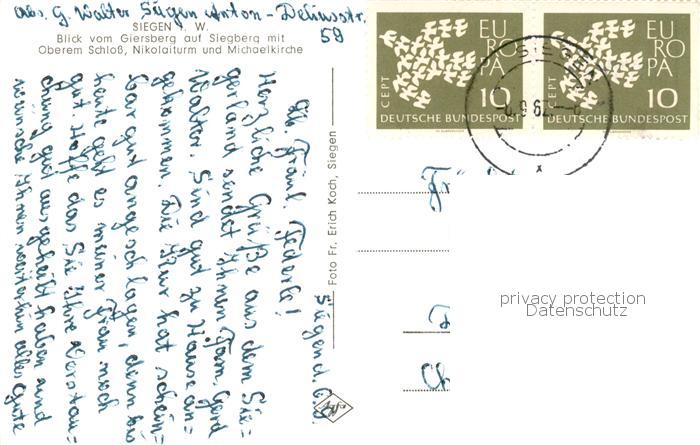 Abs. G. Walter Siegen Anton-Deliusstr. 59
SIEGEN i. W.
Blick vom Giersberg auf Siegberg mit
Oberem Schloß, Nikolaiturm und Michaelkirche
Siegen d.
Lb. Fräul. Federle!
Herzliche Grüße aus dem Sie=
gerland sendet Ihnen Fam. Gerd
Walter. Sind gut zu Hause an=
gekommen. Die Kur hat schein=
bar gut angeschlagen, denn bis
heute geht es meiner Frau noch
gut. Hoffe das Sie Ihre Verstau=
chung gut ausgeheilt haben und
wünsche Ihnen weiterhin alles Gute
Foto Fr. Erich Koch, Siegen
EUROPA
CEPT
10
DEUTSCHE BUNDESPOST
EUROPA
CEPT
10
DEUTSCHE BUNDESPOST
SIEGEN
privacy protection
Datenschutz